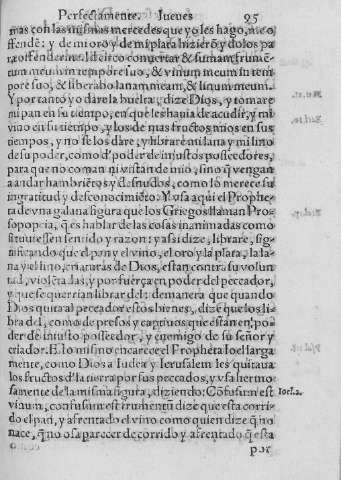 Perfectamente. Jueues 95
mas con las mismas mercedes que yo les hago, me o
ffendẽ: y de mi oro y de mi plata hizierõ ydolos pa
ra offenderme. Idcirco conuertar & sumam frumẽ-
tum meum in tempore suo, & vinum meum in tem
pore suo, & liberabo lanam meam, & linum meum.
Y por tanto yo dare la buelta, dize Dios, y tomare
mi pan en su tiempo, en que les hauia de acudir, y mi
vino en su tiempo, y los de mas fructos mios en sus
tiempos, y no se los dare, y librare mi lana y mi lino
de su poder, como d'poder de injustos posseedores,
para que no coman ni vistan de mio, sino q̃ vengan
a andar hambriẽtos y desnudos, como lo merece su
ingratitud y desconocimiẽto. Y vsa aqui el Prophe
ta de vna galana figura que los Griegos llaman Pro-
sopopeia, q̃ es hablar de las cosas inanimadas como
si tuuiessen sentido y razon: y assi dize, librare, sig-
nificando que el pan y el vino, el oro y la plata, la la-
na y el lino, criaturas de Dios, estan contra su volun
tad, violẽtadas, y por fuerça en poder del peccador,
y que se querrian librar del: de manera que quando
Dios quita al peccador estos bienes, dize que los li-
bra del, como de presos y captiuos que estan en po-
der de injusto posseedor, y enemigo de su señor y
criador. E lo mismo encarece el Propheta Ioel larga
mente, como Dios a Iudea y Ierusalem les quitaua
los fructos d'la tierra por sus peccados, y vsa hermo-
samente de la misma figura, diziendo: Cõfusum est Ioel.1.
vinum, confusum est triticum, q̃ dize que esta corri-
do el pan, y afrentado el vino como quien dize q̃ no
nace, q̃ no osa parecer de corrido y afrentado q̃ esta
por